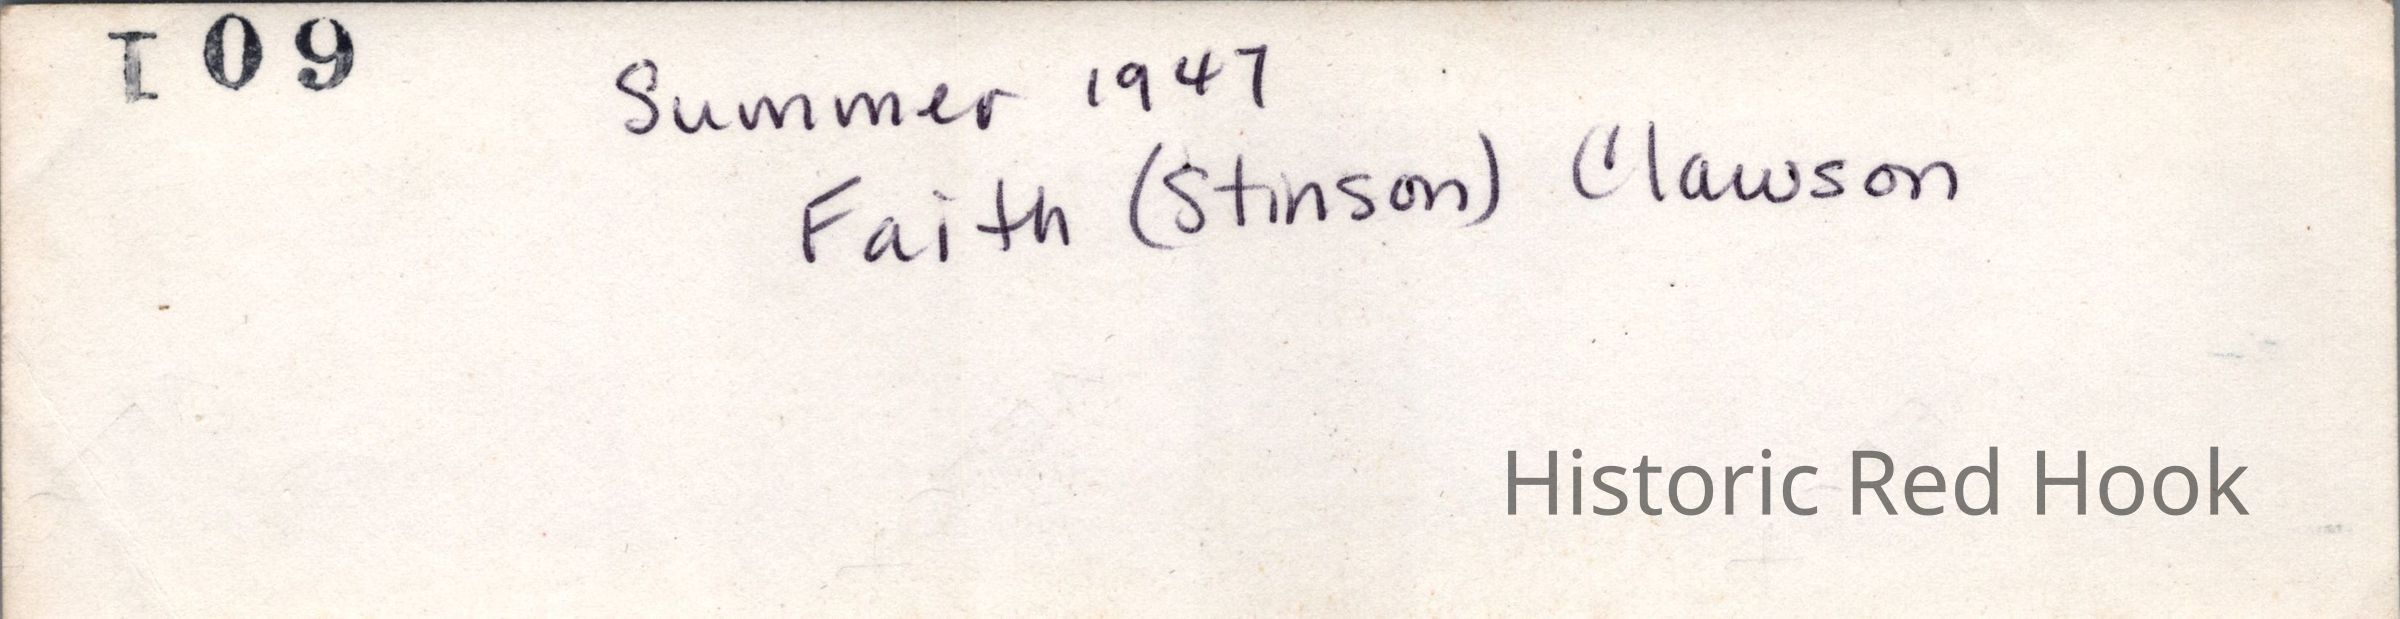 109
Summer 1947
Faith (Stinson) Clawson
Historic Red Hook